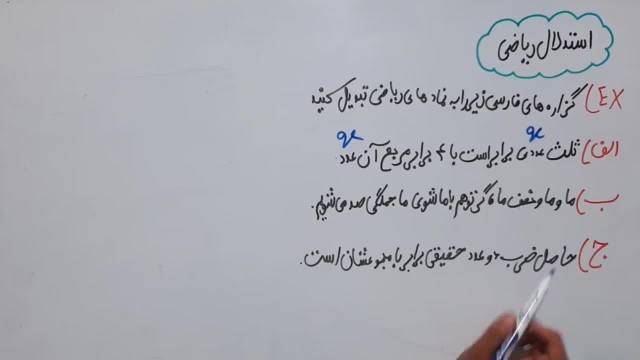 استدلال ریاضی
EX) گزاره های فارسی زیر را به نماد های ریاضی تبدیل کنید
x x
الف) ثلث عددی برابر است با ۴ برابر مربع آن عدد
ب) ما و ما و نصف ما گر تو هم با ما شوی ما جملگی صد می شویم.
ج) حاصل ضرب ۲ عدد حقیقی برابر با مجموعشان است.